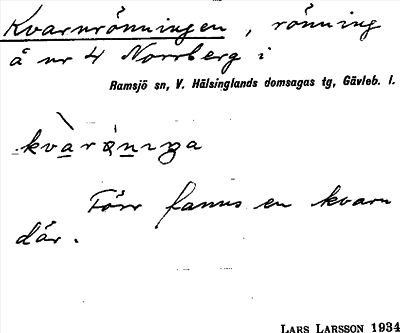 Kvarnrönningen, rönning
å nr 4 Norrberg i
Ramsjö sn, V. Hälsinglands domsagas tg, Gävleb. l.
Förr fanns en kvarn
där.
LARS LARSSON 1934